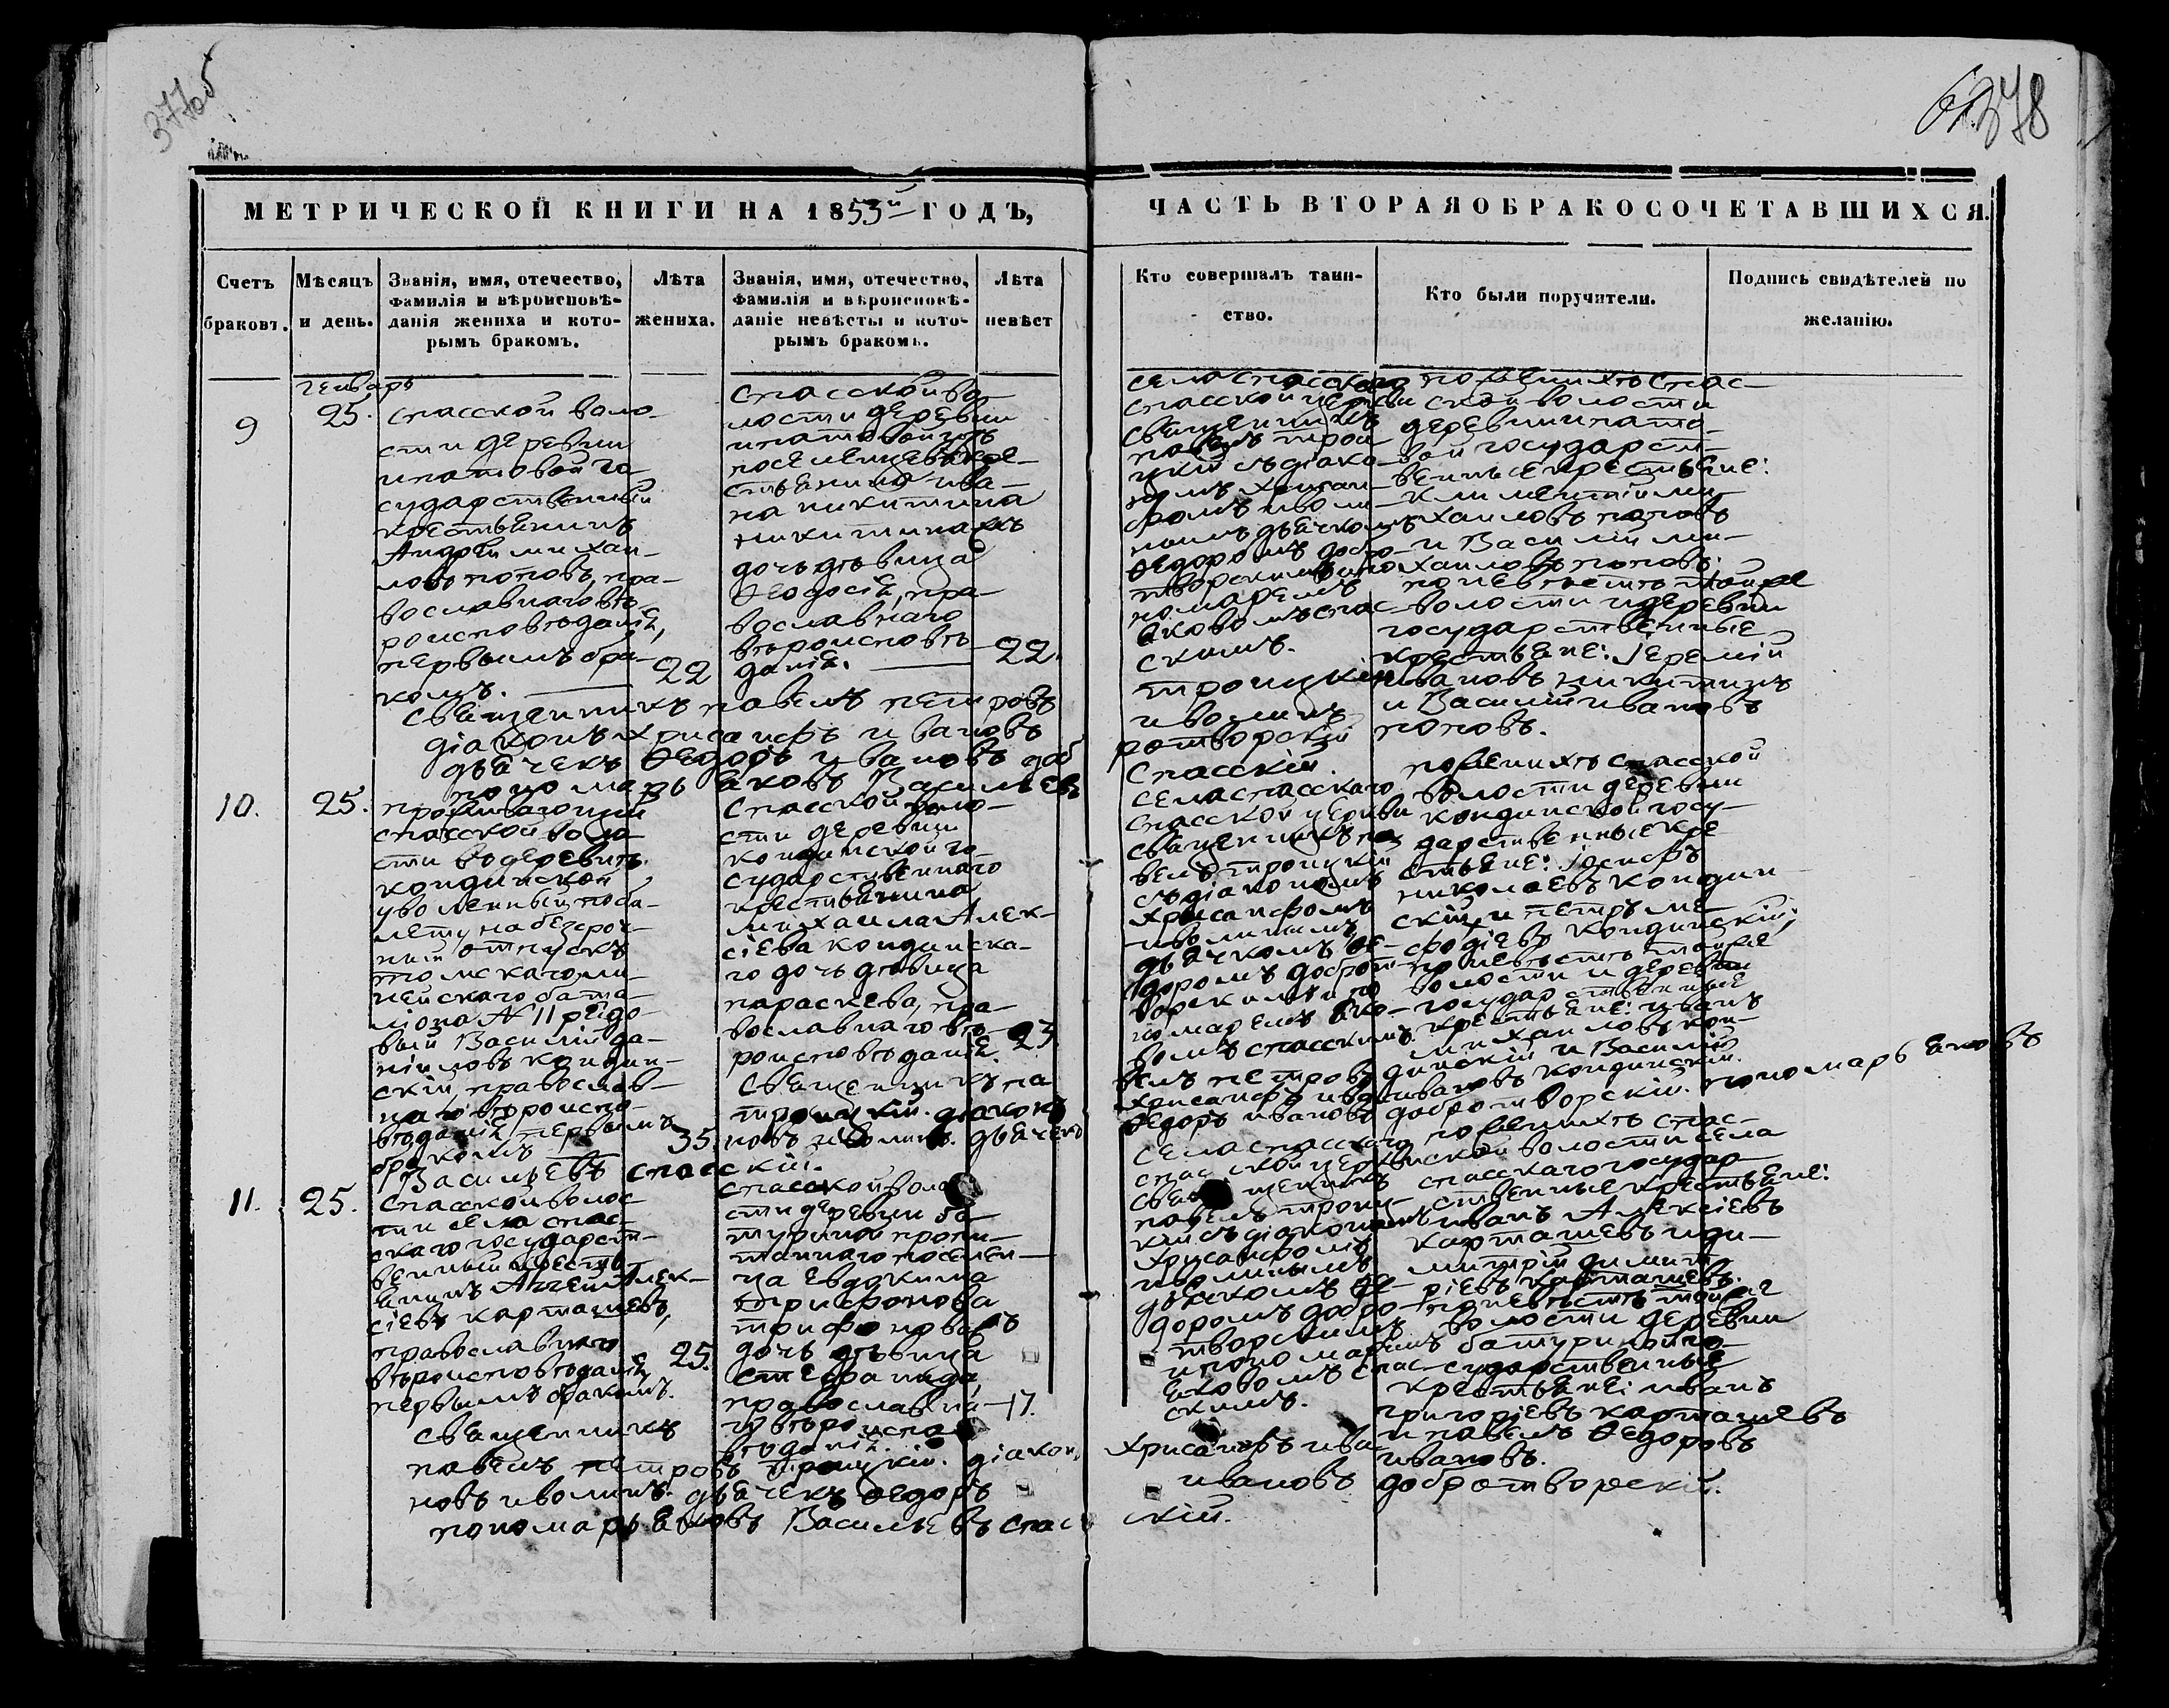 377об
378
МЕТРИЧЕСКОЙ КНИГИ НА 1853й ГОДЪ,
ЧАСТЬ ВТОРАЯ О БРАКОСОЧЕТАВШИХСЯ.
Счетъ браковъ.
Мѣсяцъ и день.
Званія, имя, отечество,
фамилія и вѣроисповѣ-
данія жениха и кото-
рымъ бракомъ.
Лѣта
жениха.
Званія, имя, отечество,
фамилія и вѣроисповѣ-
даніе невѣсты и кото-
рымъ бракомъ.
Лѣта
невѣст
Кто совершалъ таин-
ство.
Кто были поручители.
Подпись свидѣтелей по
желанію.
Генварь
9
25.
спасской воло-
сти деревни
ипатовой го-
сударственный
крестьянинъ
Андрей михаи-
ловъ поповъ, пра-
вославнаго вѣ-
роисповѣданія,
первымъ бра-
комъ.
22
спасской во-
лости деревни
ипатовой изъ
поселенцевъ кре-
стьянина ива-
на никитина
никитина
дочь дѣвица
Ѳеодосія, пра-
вославнаго
вѣроисповѣ-
данія.
22.
села спасскаго
спасской церкви
священникъ
павелъ трои
цкій съ діако-
номъ Хрисан-
ѳомъ иволи-
нымъ дьячкомъ
Ѳедоромъ добро-
творскимъ и по
номаремъ
Яковомъ спас-
скимъ.
по женихѣ спас-
ской волости
деревни ипато-
вой государст-
венные крестьяне:
климентій ми-
хаиловъ поповъ
и Василій ми-
хаиловъ поповъ:
по невѣстѣ той же
волости и деревни
государственные
крестьяне: Іеремій
ивановъ никитинъ
и Василій ивановъ
поповъ.
священникъ павелъ петровъ троицкій
діаконъ Хрисанфъ ивановъ иволинъ
дьячекъ Ѳедоръ ивановъ добротворскій
пономарь Яковъ Васильевъ Спасскій.
10.
25.
проживающій
спасской воло
сти въ деревнѣ
кондинской
уволенный по би-
лету на безсроч-
ный отпускъ
томскаго ли-
нейскаго бата-
ліона № 11 рядо-
вый Василій да-
ніиловъ кондин-
скій, православ-
наго вѣроиспо-
вѣданія, первымъ
бракомъ
35.
Спасской воло-
сти деревни
кондинской го
сударственнаго
крестьянина
михаила Алек-
сіева кондинска-
го дочь дѣвица
параскева, пра-
вославнаго вѣ-
роисповѣданія.
23.
села спасскаго
спасской церкви
священникъ па
велъ троицкій
съ діакономъ
Хрисанфомъ
иволинымъ
дьячкомъ Ѳе-
доромъ доброт-
ворскимъ и по
номаремъ Яко-
вомъ спасскимъ.
по женихѣ спасской
волости деревни
кондинской госу-
дарственные кре
стьяне: Іосифъ
николаевъ кондин
скій и петръ ме-
фодіевъ кондинскій;
по невѣстѣ той же
волости и деревни
государственные
крестьяне: иванъ
михаиловъ кон-
динскій и Василій
ивановъ кондинскій.
священникъ павелъ петровъ
троицкій. діаконъ Хрисанфъ ива
новъ иволинъ. дьячекъ Ѳедоръ ивановъ добротворскій. пономарь Яковъ
Васильевъ спасскій.
11.
25.
спасской волос
ти села спас-
скаго государст-
венный крестья
янинъ Алек-
сіевъ карташевъ,
православнаго
вѣроисповѣданія,
первымъ бракомъ.
25.
спасской воло
сти деревни ба
туриной пропи-
таннаго поселен-
ца Евдокима
трифонова
дочь дѣвица
Стефанида,
православна-
го вѣроиспо
вѣданія.
17.
села спасскаго
спасской церкви
священникъ
павелъ троиц-
кій съ діакономъ
Хрисанфомъ
иволинымъ
дьячкомъ Ѳе-
доромъ добро-
творскимъ
и пономаремъ
Яковомъ спас-
скимъ.
по женихѣ спас-
ской волости села
спасскаго государ-
ственные крестьяне:
иванъ Алексіевъ
карташевъ и ди-
митрій димит
ріевъ карташевъ.
по невѣстѣ той же
волости деревни
батуриной го-
сударственные
крестьяне: иванъ
григоріевъ карташевъ
и павелъ Ѳедоровъ
ивановъ.
священникъ
павелъ петровъ троицкій. діаконъ Хрисанфъ ива
новъ иволинъ. дьячекъ Ѳедоръ ивановъ добротворскій.
пономарь Яковъ Васильевъ спасскій.